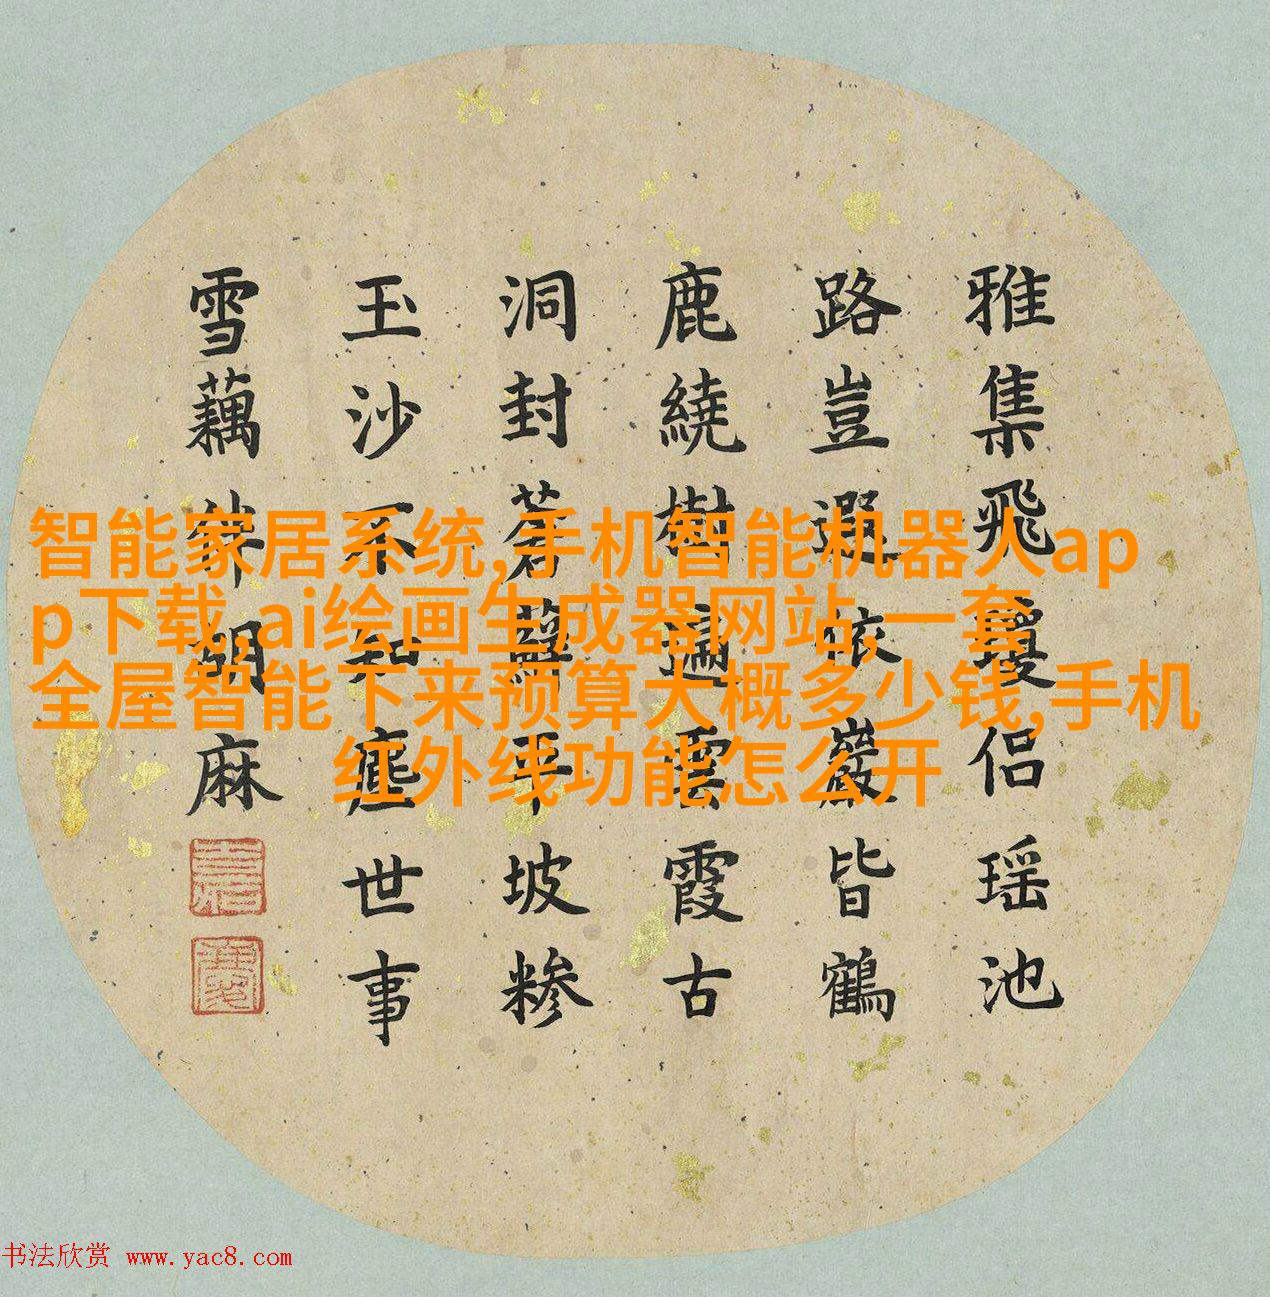 雅集飛瓊侶瑶池
路豈遐依巖皆鶴
鹿繞樹遍雲霞古
洞封蒼蘚平坡糝
玉沙不知塵世事
雪藕伴胡麻
智能家居系统,手机智能机器人ap
p下载,ai绘画生成器网站,一套
全屋智能下来预算大概多少钱,手机
红外线功能怎么开
书法欣赏 www.yac8.com